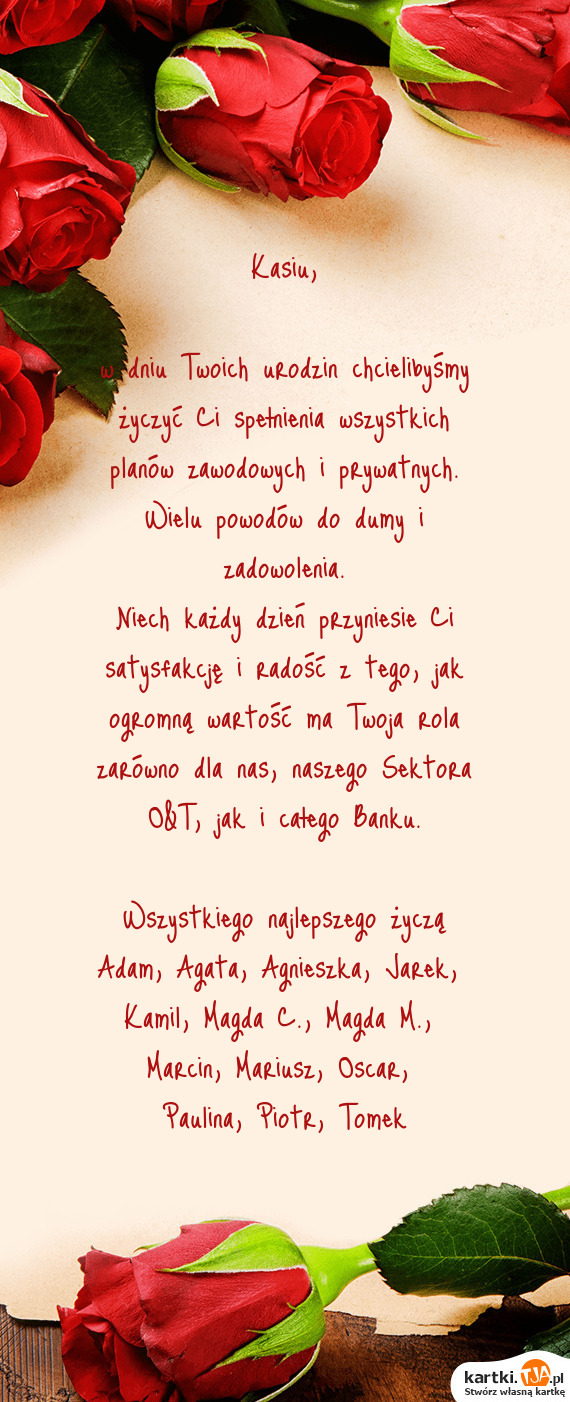 Kasiu,
w dniu Twoich urodzin chcielibyśmy
życzyć Ci spełnienia wszystkich
planów zawodowych i prywatnych.
Wielu powodów do dumy i
zadowolenia.
Niech każdy dzień przyniesie Ci
satysfakcję i radość z tego, jak
ogromną wartość ma Twoja rola
zarówno dla nas, naszego Sektora
O&T, jak i całego Banku.
Wszystkiego najlepszego życzą
Adam, Agata, Agnieszka, Jarek,
Kamil, Magda C., Magda M.,
Marcin, Mariusz, Oscar,
Paulina, Piotr, Tomek
kartki.TJA.pl
Stwórz własną kartkę